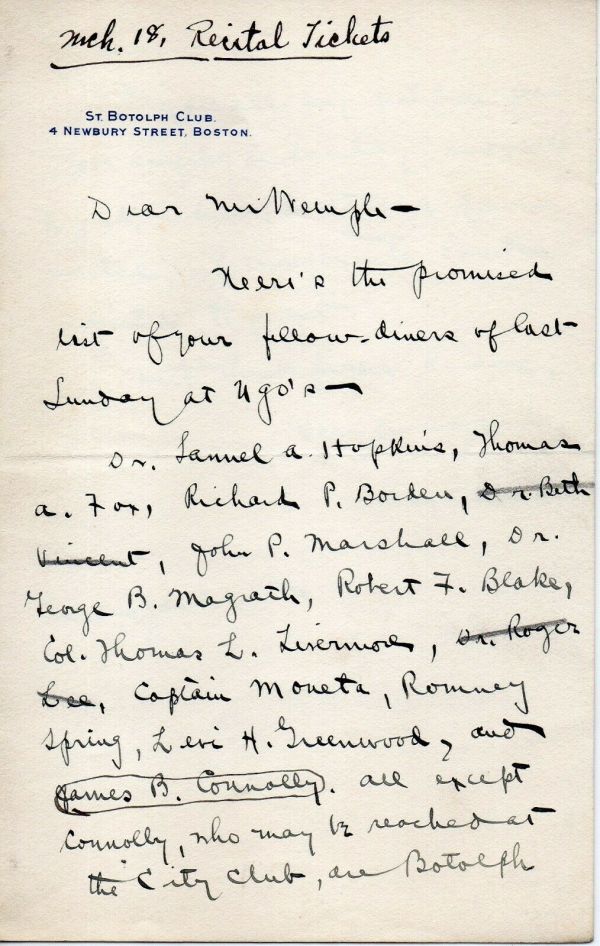 Mch. 18, Recital Tickets
ST. BOTOLPH CLUB.
4 NEWBURY STREET, BOSTON.
Dear Mr Wemple—
Here's the promised
list of your fellow-diners of last
Sunday at Ugo's—
Dr. Samuel A. Hopkins, Thomas
A. Fox, Richard P. Borden, Dr. Beth
Vincent, John P. Marshall, Dr.
George B. Magrath, Robert F. Blake,
Col. Thomas L. Livermore, Dr. Roger
Lee, Captain Moneta, Romney
Spring, Levi H. Greenwood, and
James B. Connolly. All except
Connolly, who may be reached at
the City Club, are Botolph